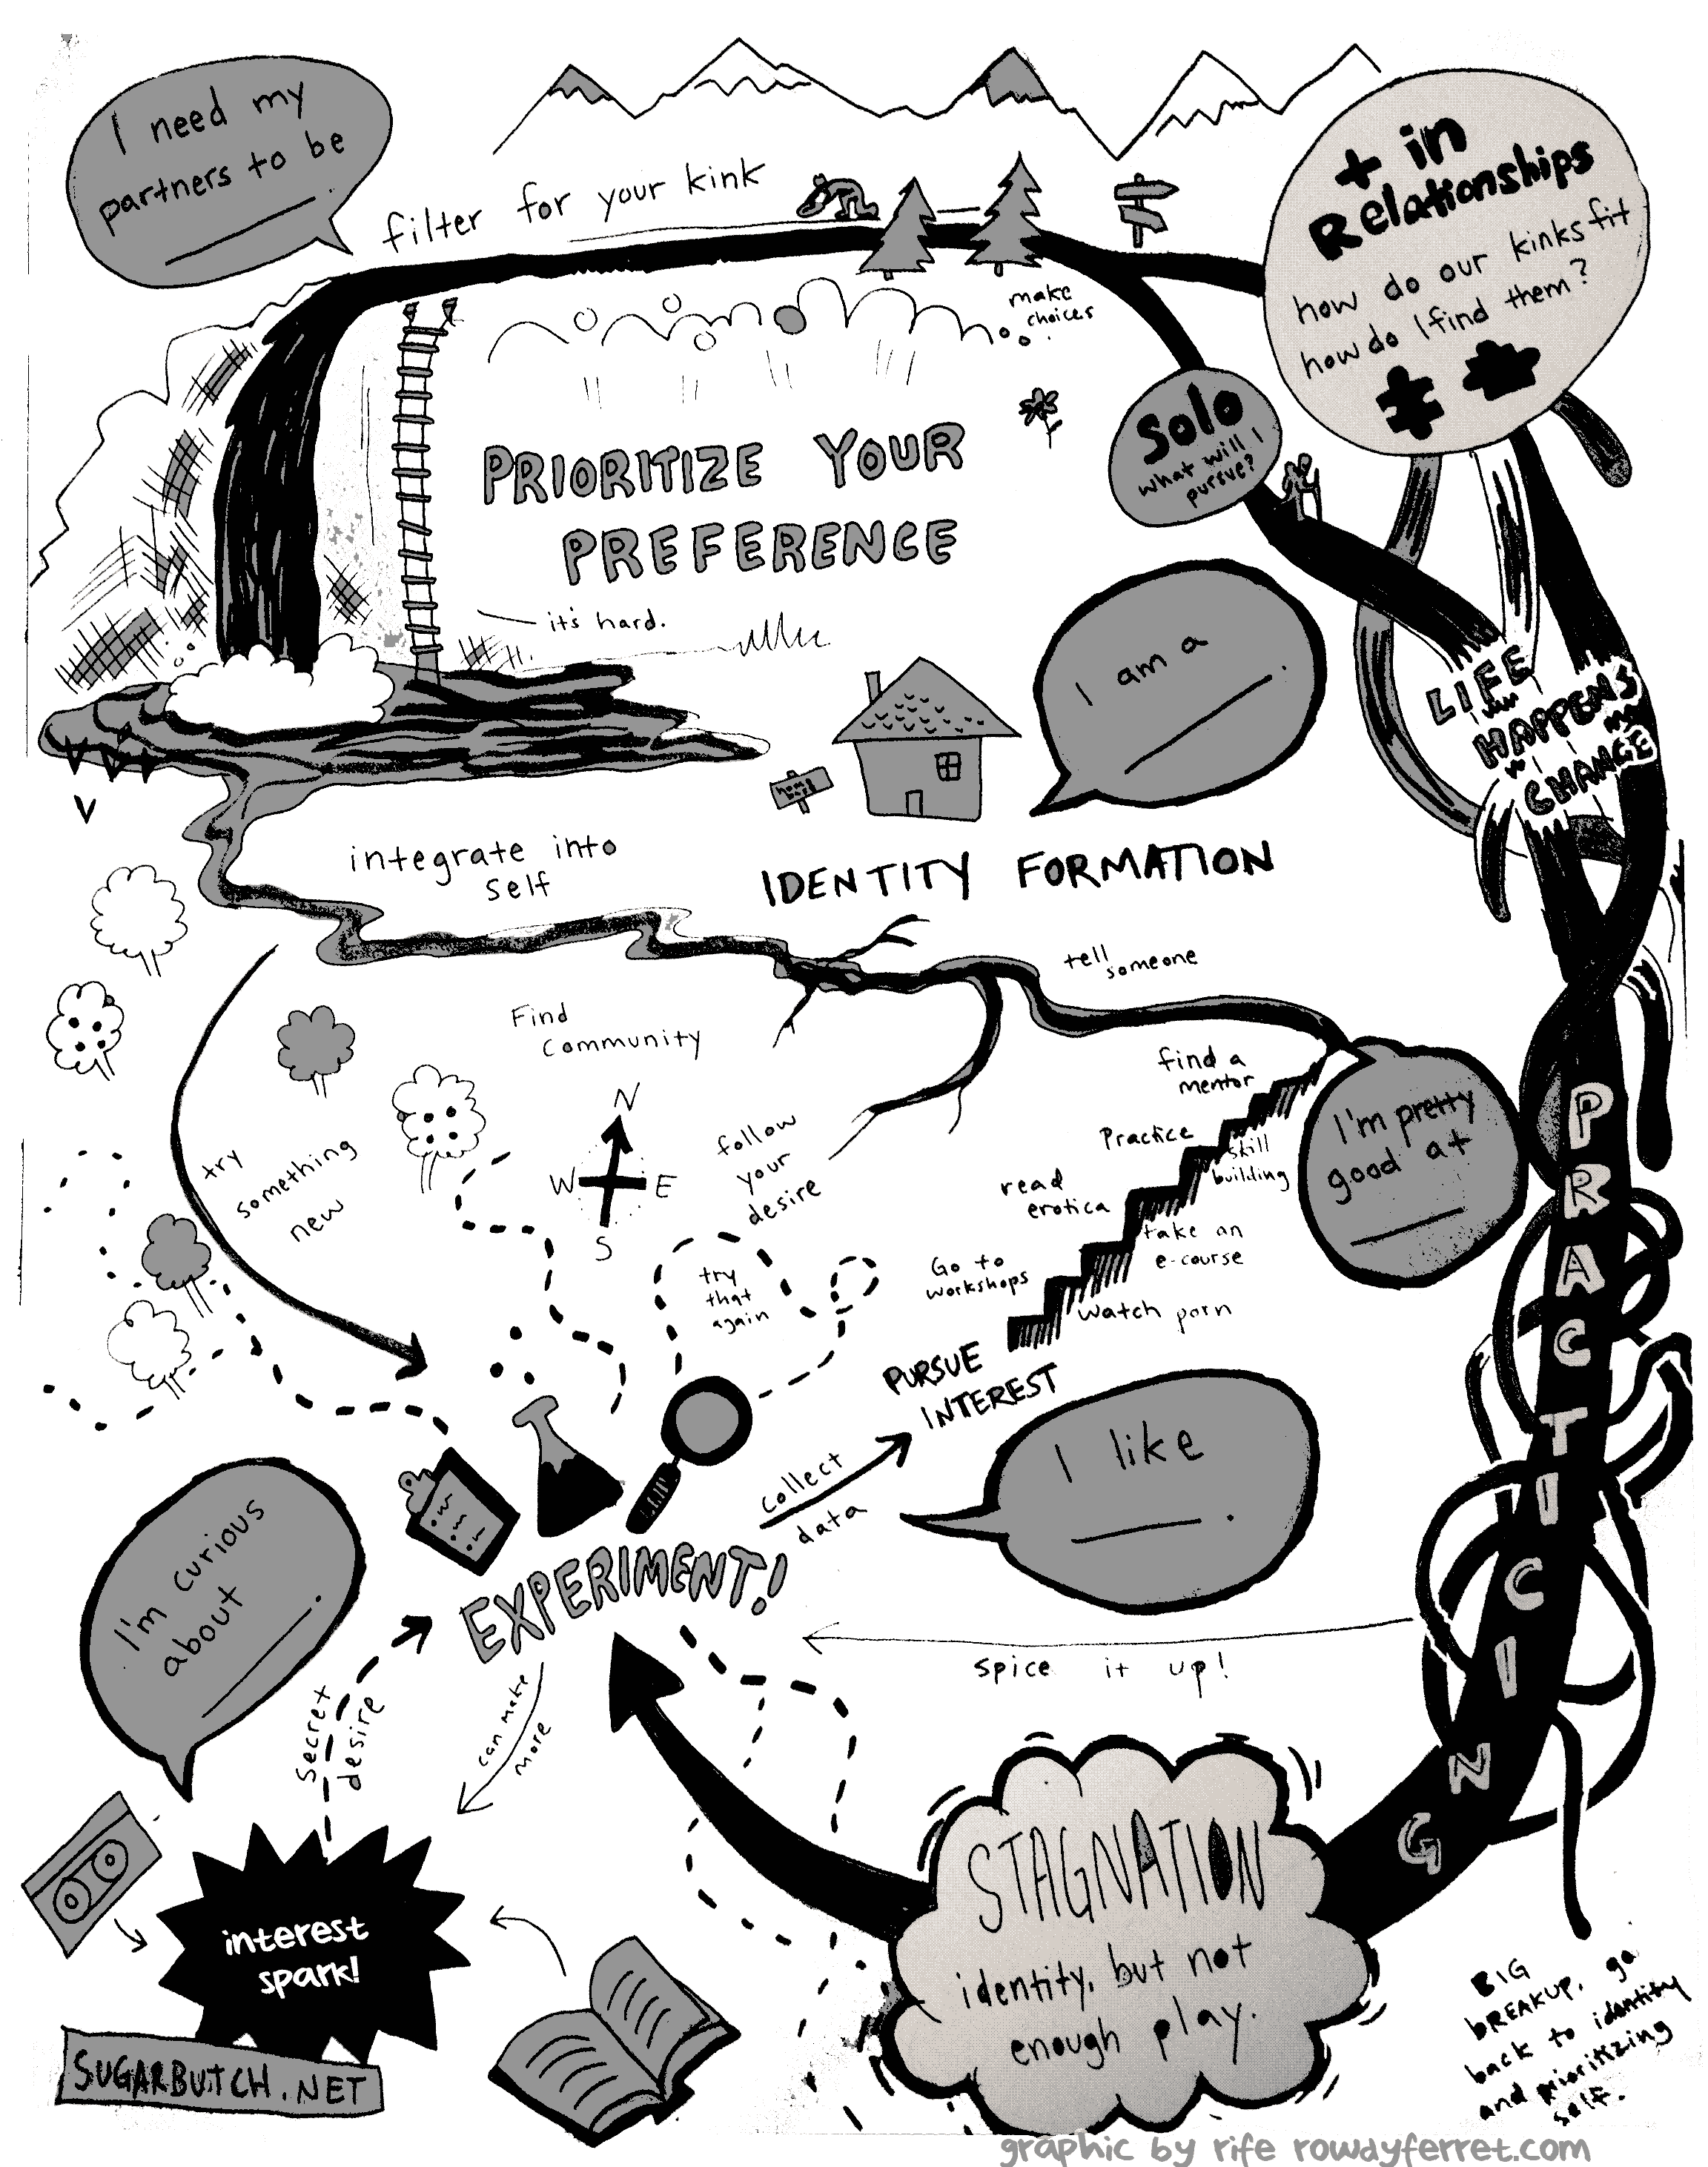 I need my
partners to be
filter for your kink
+ in
Relationships
how do our kinks fit
how do I find them?
make
choices
Solo
what will I
pursue?
PRIORITIZE YOUR
PREFERENCE
it's hard.
I am a
.
LIFE
HAPPENS
CHANGE
home
base
integrate into
self
IDENTITY FORMATION
tell
someone
Find
community
find a
mentor
Practice
skill
building
I'm pretty
good at
N
W E
S
follow
your
desire
try
something
new
read
erotica
take an
e-course
Go to
workshops
watch porn
try
that
again
PURSUE
INTEREST
PRACTICING
I like
.
collect
data
I'm curious
about
.
EXPERIMENT!
spice it up!
secret
desire
can make
more
STAGNATION
identity, but not
enough play.
interest
spark!
BIG
BREAKUP, go
back to identity
and prioritizing
self.
SUGARBUTCH.NET
graphic by rife rowdyferret.com